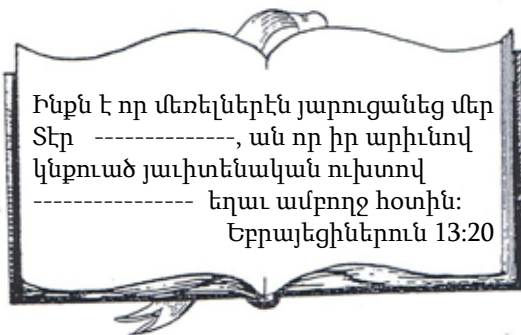 Ինքն է որ մեռելներէն յարուցանեց մեր
Տէր --------------, ան որ իր արիւնով
կնքուած յաւիտենական ուխտով
---------------- եղաւ ամբողջ հօտին:
Եբրայեցիներուն 13:20